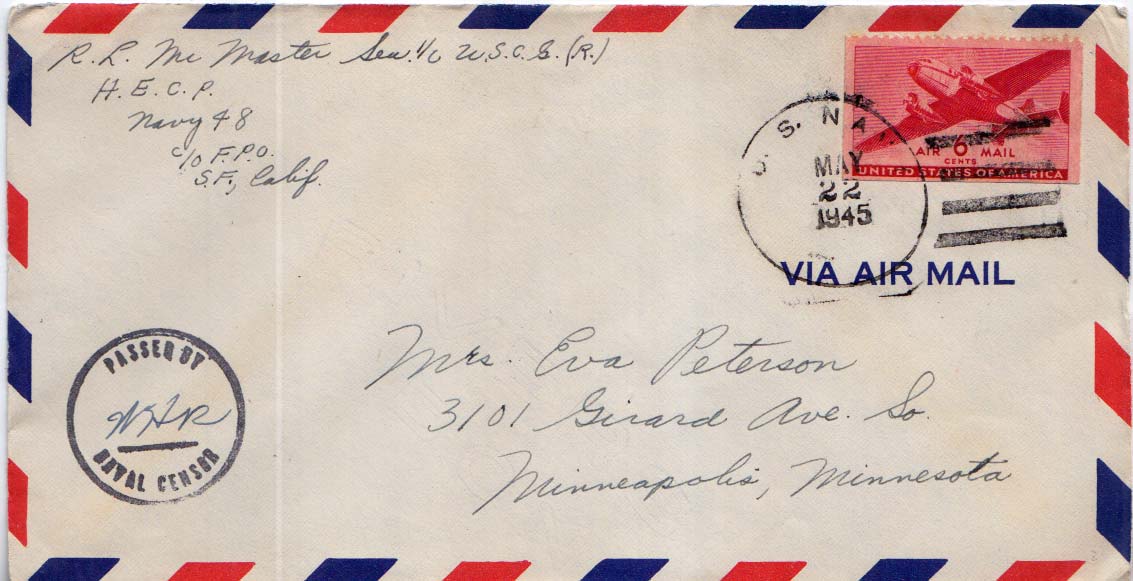 R. L. Mc Master Sea. 1/c U.S.C.G. (R.)
H. E. C. P.
Navy 48
c/o F.P.O.
S.F., Calif.
U. S. NA
MAY
22
1945
AIR 6 MAIL
CENTS
UNITED STATES OF AMERICA
VIA AIR MAIL
PASSED BY
NAVAL CENSOR
Mrs. Eva Peterson
3101 Girard Ave. So.
Minneapolis, Minnesota